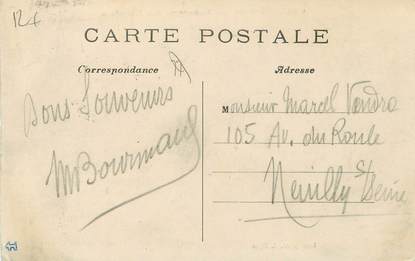 12€
CARTE POSTALE
Correspondance
Adresse
Bons Souvenirs
Monsieur Marcel Vendro
105 Av. du Roule
Neuilly s/ Seine